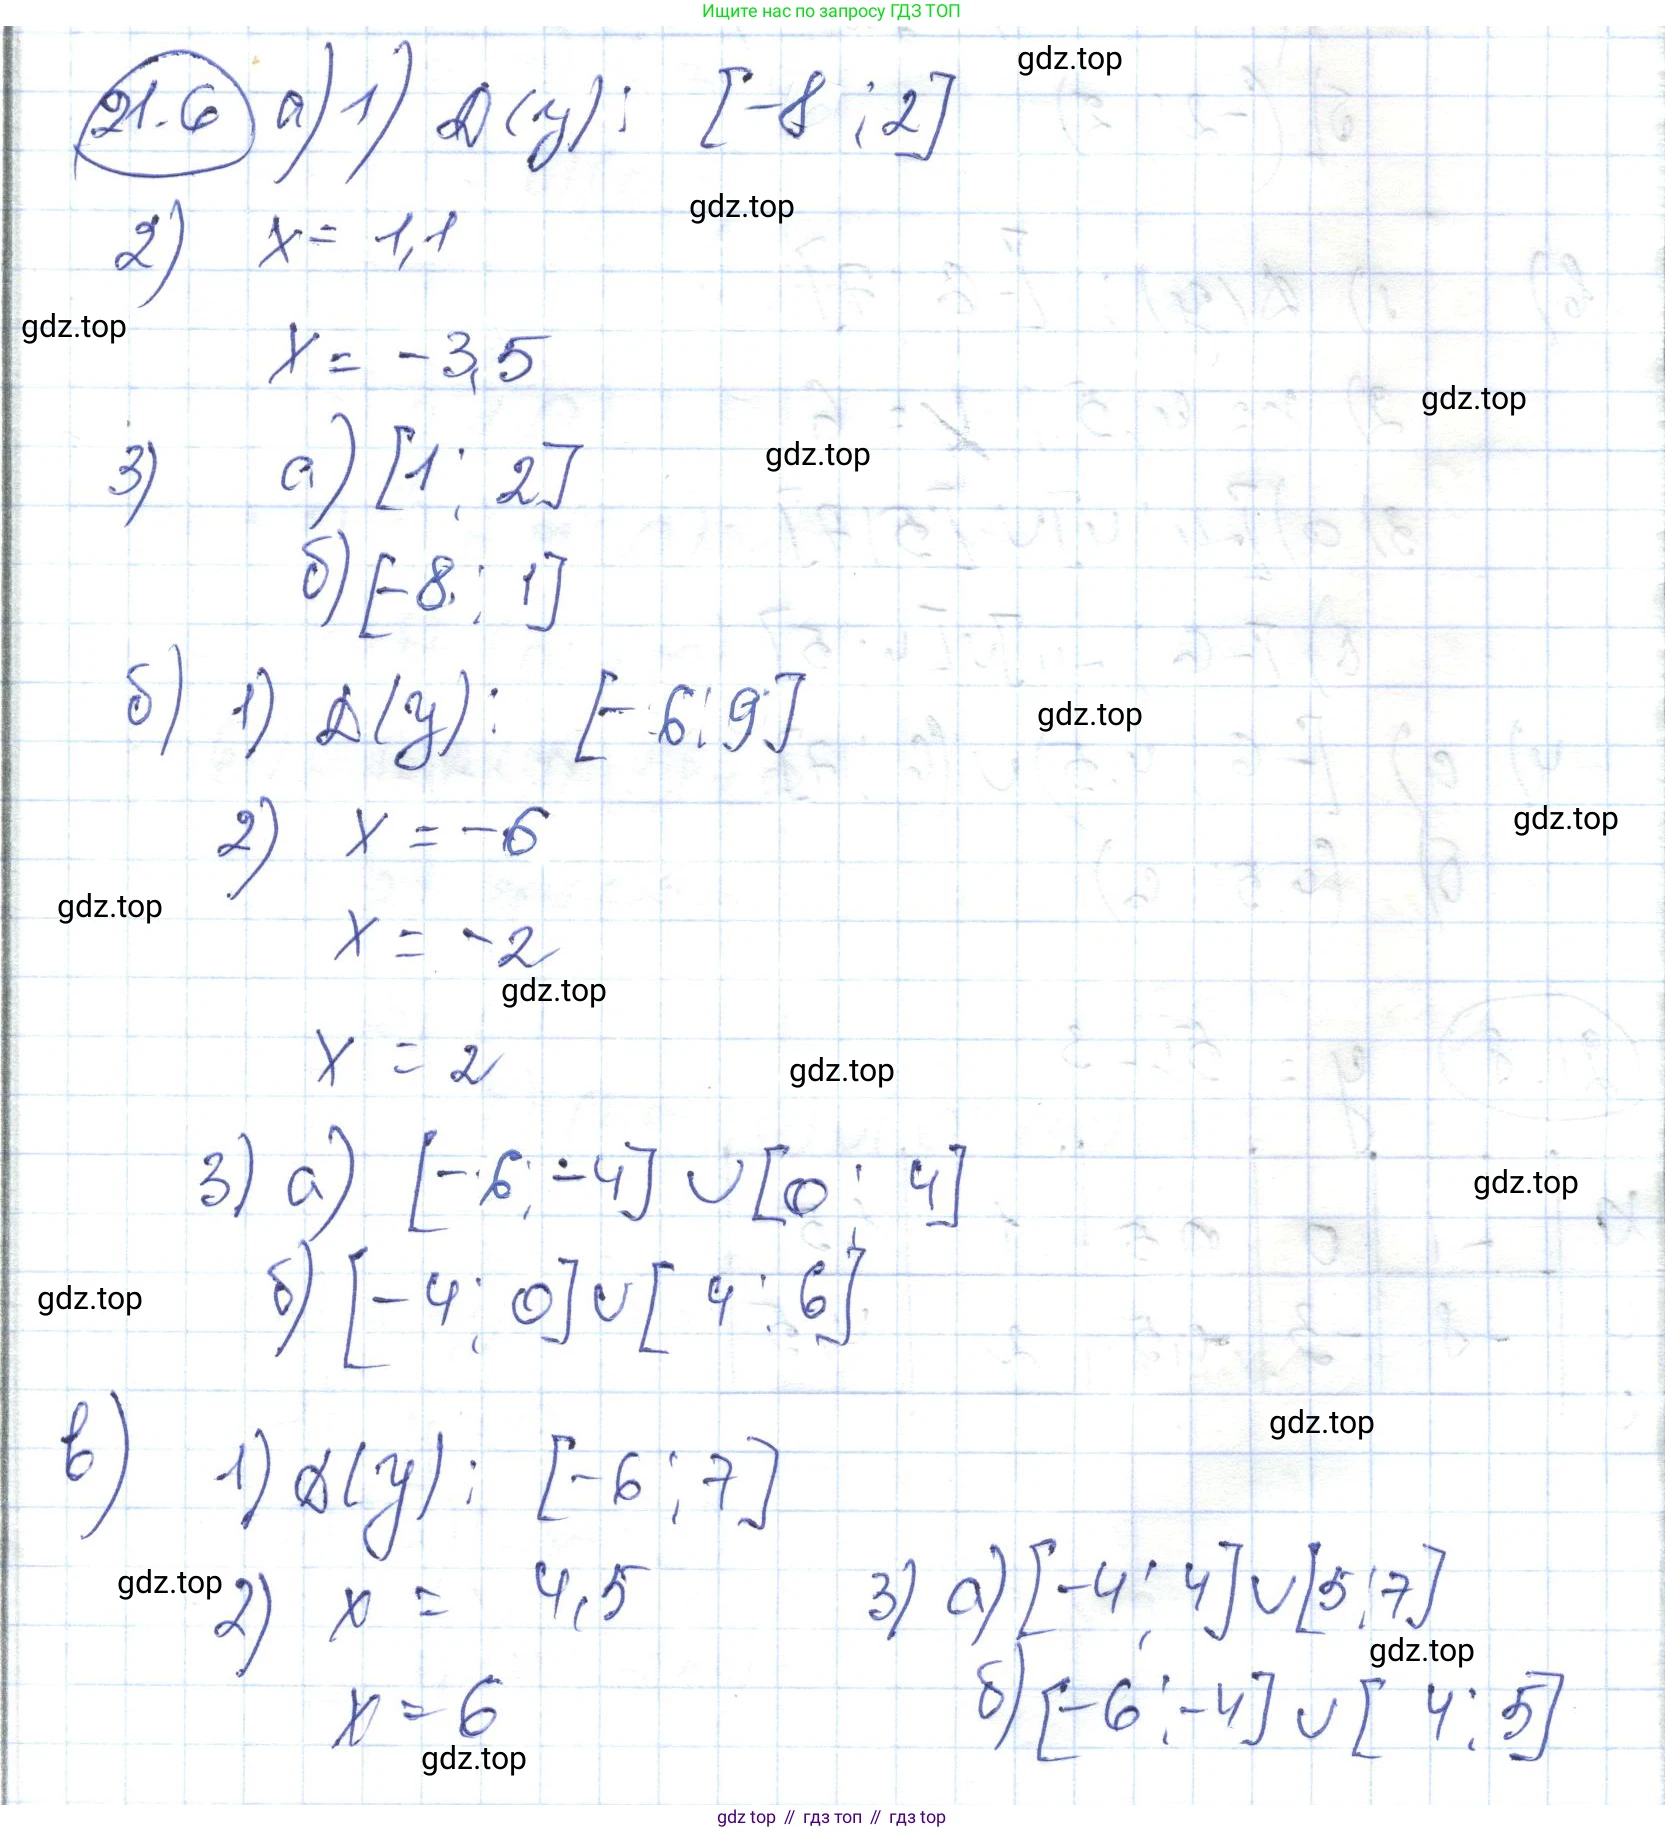 Ищите нас по запросу ГДЗ ТОП
gdz.top
21.6 а) 1) D(y): [-8; 2]
gdz.top
2) x = 1,1
gdz.top
x = -3,5
gdz.top
gdz.top
3) а) [1; 2]
б) [-8; 1]
б) 1) D(y): [-6; 9]
gdz.top
2) x = -6
gdz.top
gdz.top
x = -2
gdz.top
x = 2
gdz.top
3) а) [-6; -4] ∪ [0; 4]
gdz.top
б) [-4; 0] ∪ [4; 6]
gdz.top
gdz.top
в) 1) D(y): [-6; 7]
gdz.top
2) x = 4,5
3) а) [-4; 4] ∪ [5; 7]
gdz.top
x = 6
б) [-6; -4] ∪ [4; 5]
gdz.top
gdz top // гдз топ // гдз top